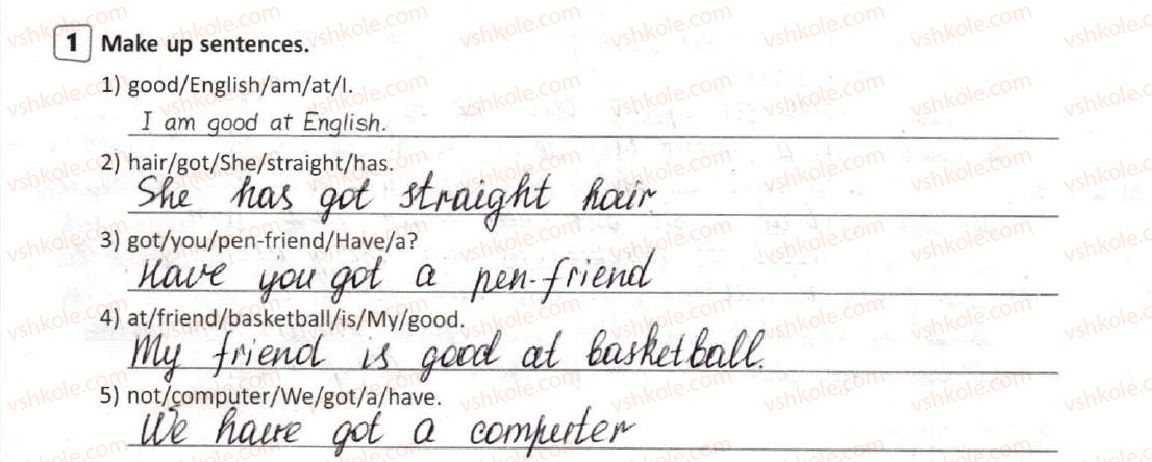 1 Make up sentences.
1) good/English/am/at/I.
I am good at English.
2) hair/got/She/straight/has.
She has got straight hair.
3) got/you/pen-friend/Have/a?
Have you got a pen-friend
4) at/friend/basketball/is/My/good.
My friend is good at basketball.
5) not/computer/We/got/a/have.
We have got a computer